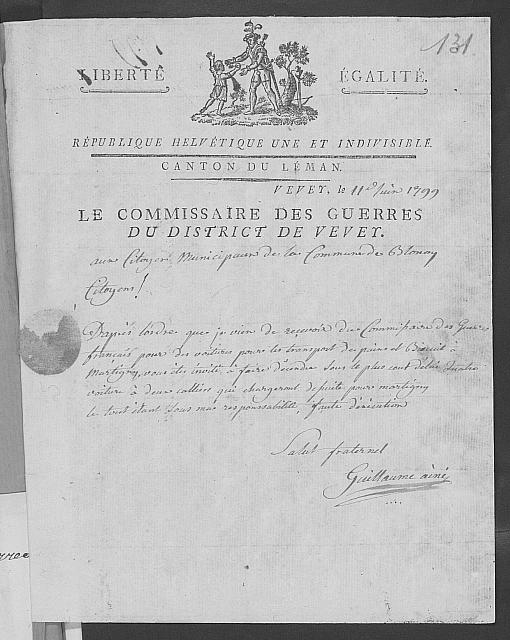 131.
LIBERTÉ ÉGALITÉ.
RÉPUBLIQUE HELVÉTIQUE UNE ET INDIVISIBLE.
CANTON DU LÉMAN.
VEVEY, le 11e Juin 1799
LE COMMISSAIRE DES GUERRES
DU DISTRICT DE VEVEY.
aux Citoyens Municipaux de la Commune de Blonay
Citoyens!
D'après l'ordre que je vien de recevoir du Commissaire des Guerres
français pour des voitures pour les transport de pains et Biscuit à
Martigny, vous êtes invité à faire décendre sous le plus court délai
voiture à deux colliers qui chargeront de suite pour martigny
le tout étant sous ma responsabilité, faute d'exécution
Salut fraternel
Guillaume ainé